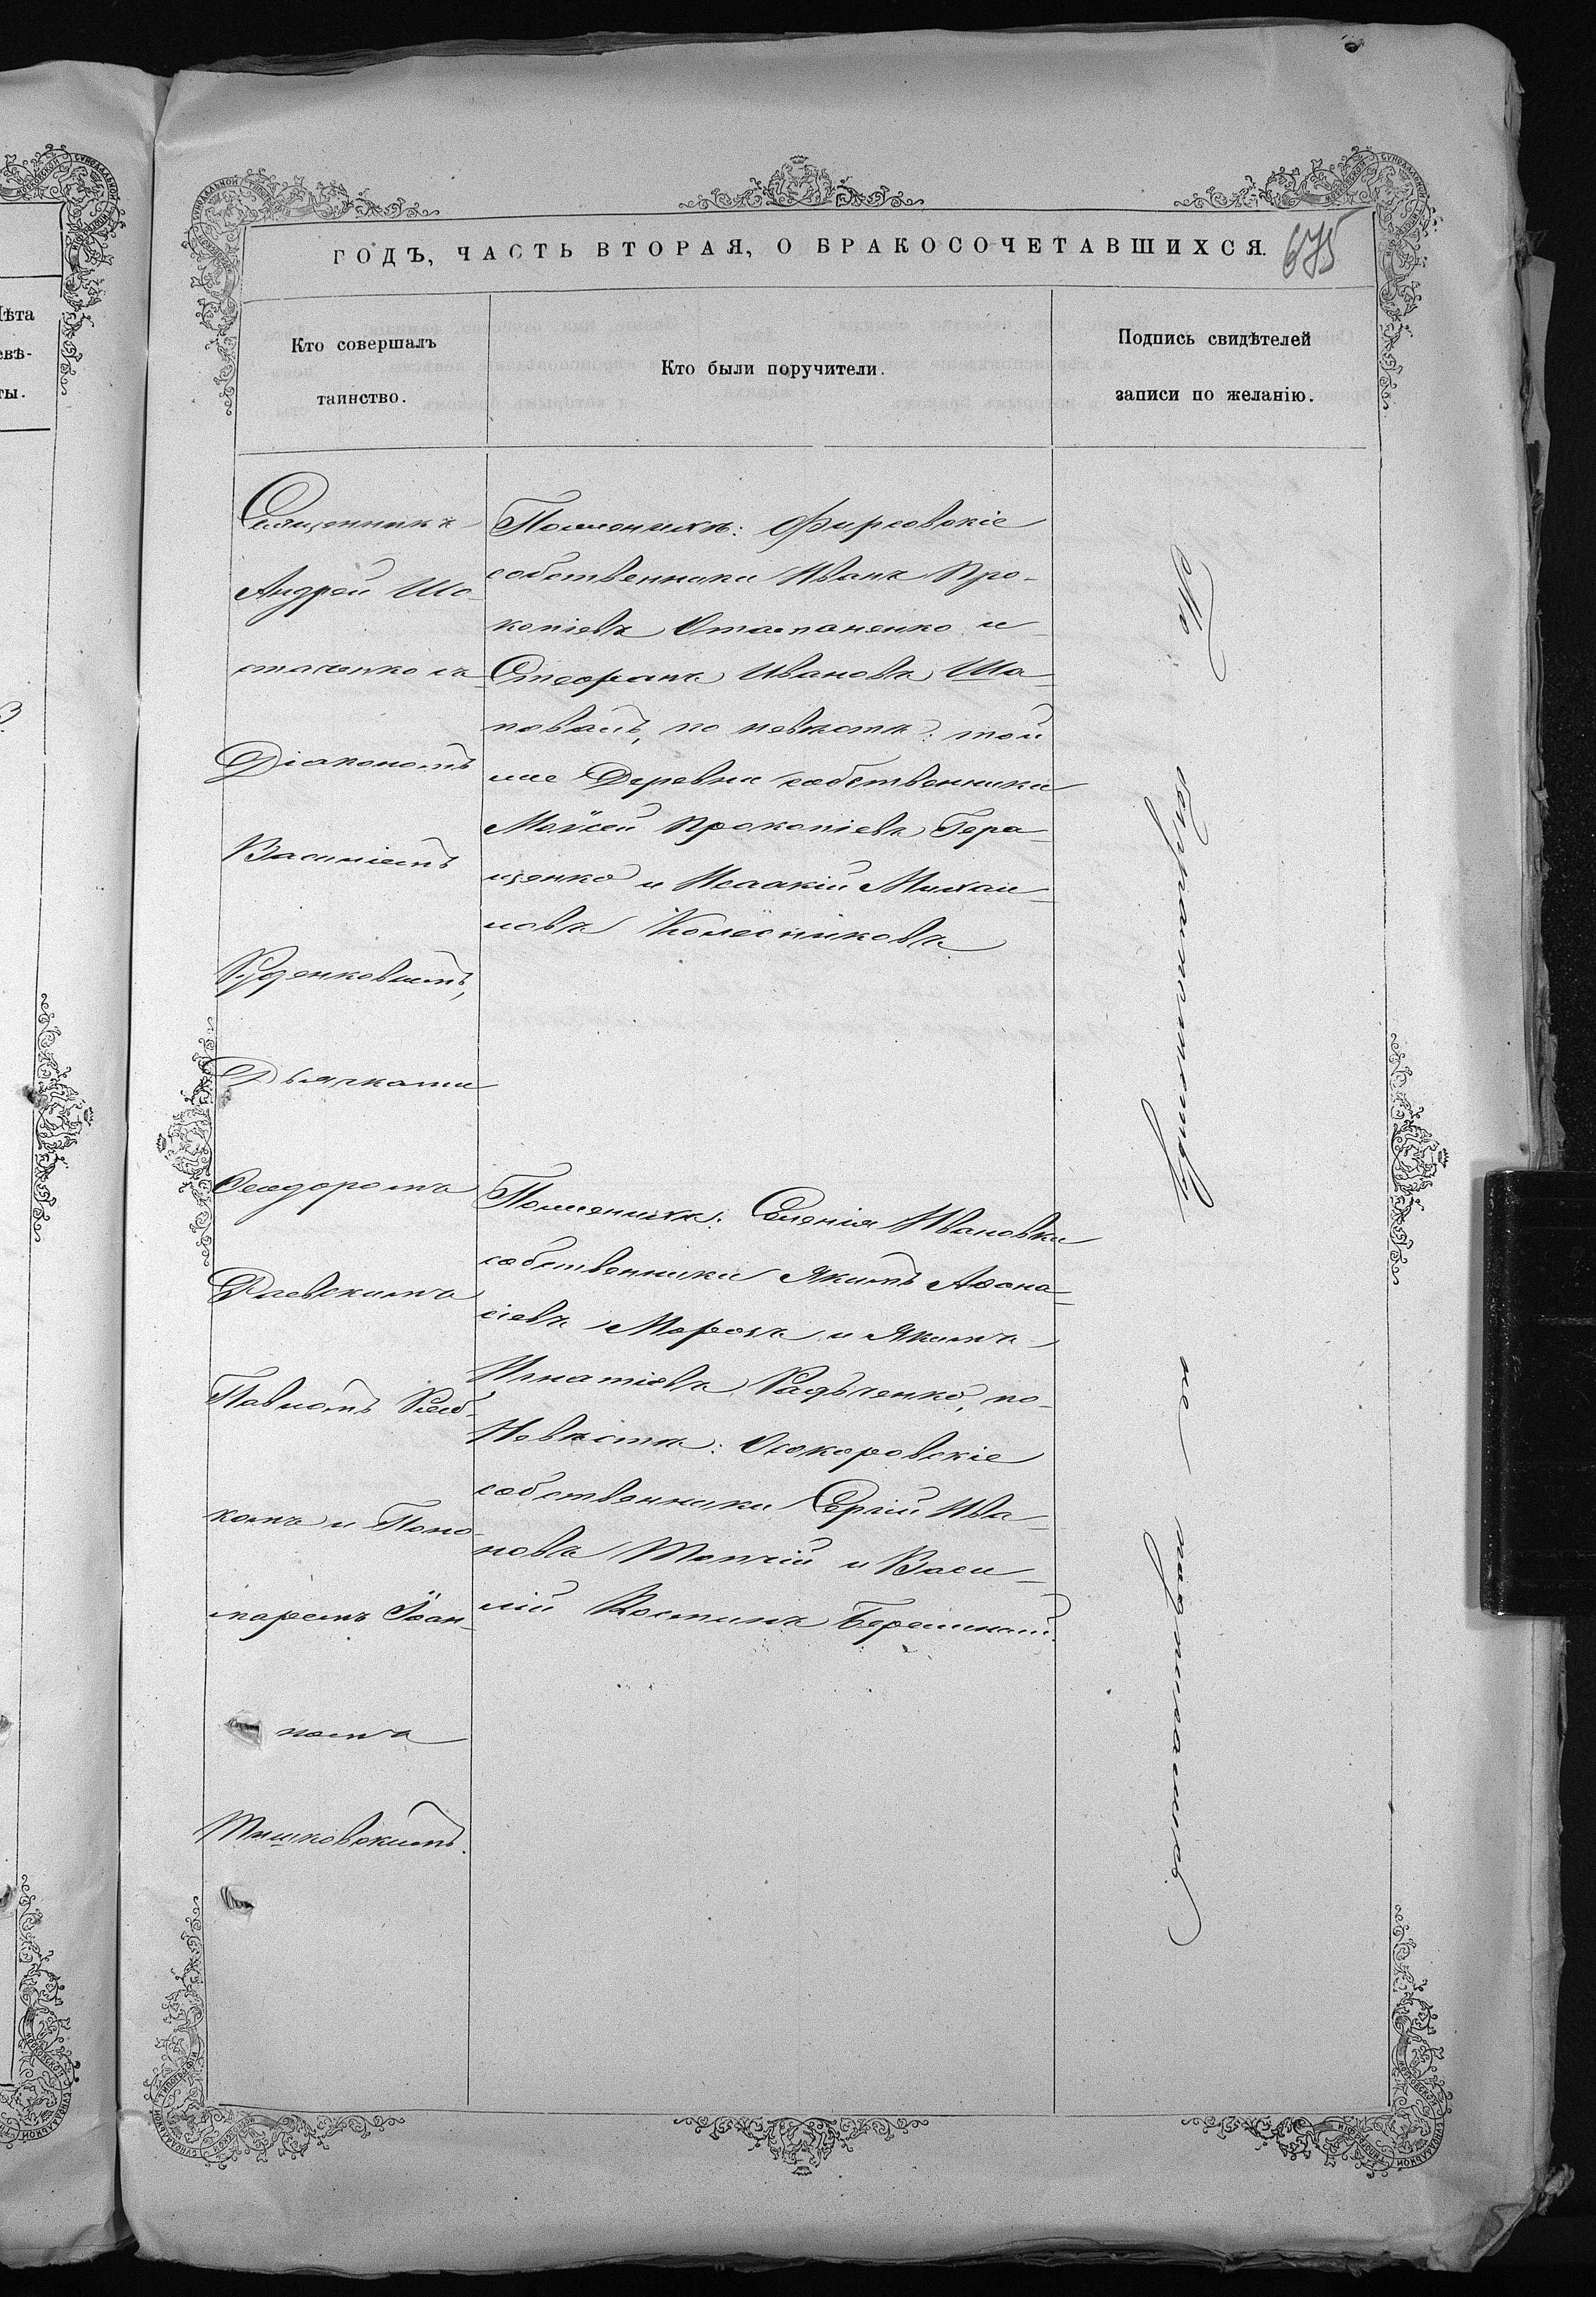 ГОДЪ, ЧАСТЬ ВТОРАЯ, О БРАКОСОЧЕТАВШИХСЯ.
675
Кто совершалъ
таинство.
Кто были поручители.
Подпись свидѣтелей
записи по желанію.
Священникъ
Андрей Шо-
стаченко съ
Діакономъ
Василіемъ
Дьячками
Ѳеодоромъ
Раевскимъ
Павломъ
комъ и Поно-
маремъ Іоан-
номъ
Тишковскимъ.
По женихѣ: Фирсовскіе
собственники Иванъ Про-
копіевъ Остапаненко и
Стефанъ Ивановъ Ша-
повалъ, по невѣстѣ: той
же Деревни собственники
Мойсей Прокопіевъ Гера-
щенко и Исаакій Михаи-
ловъ Колесниковъ
По женихѣ: Селенія Ивановки
собственники Якимъ Аѳона-
сіевъ Морозъ и Якимъ
Игнатіевъ Радченко, по
Невѣстѣ: Осокоровскіе
собственники Сергій Ива-
новъ Топчій и Васи-
лій Костинъ
лѣта
евѣ-
ты.